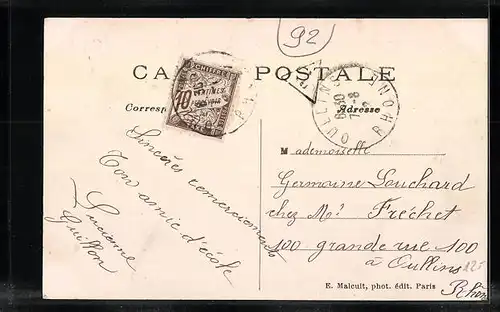 92
CARTE POSTALE
Correspondance
Adresse
CHIFFRE
10
CENTIMES
A PERCEVOIR
OULLINS
RHONE
Sincères remerciements
Ton amie d'école
Lucienne
Guillon
Mademoiselle
Germaine Louchard
chez Mr Fréchet
100 grande rue 100
à Oullins
Rhône
E. Malcuit, phot. édit. Paris